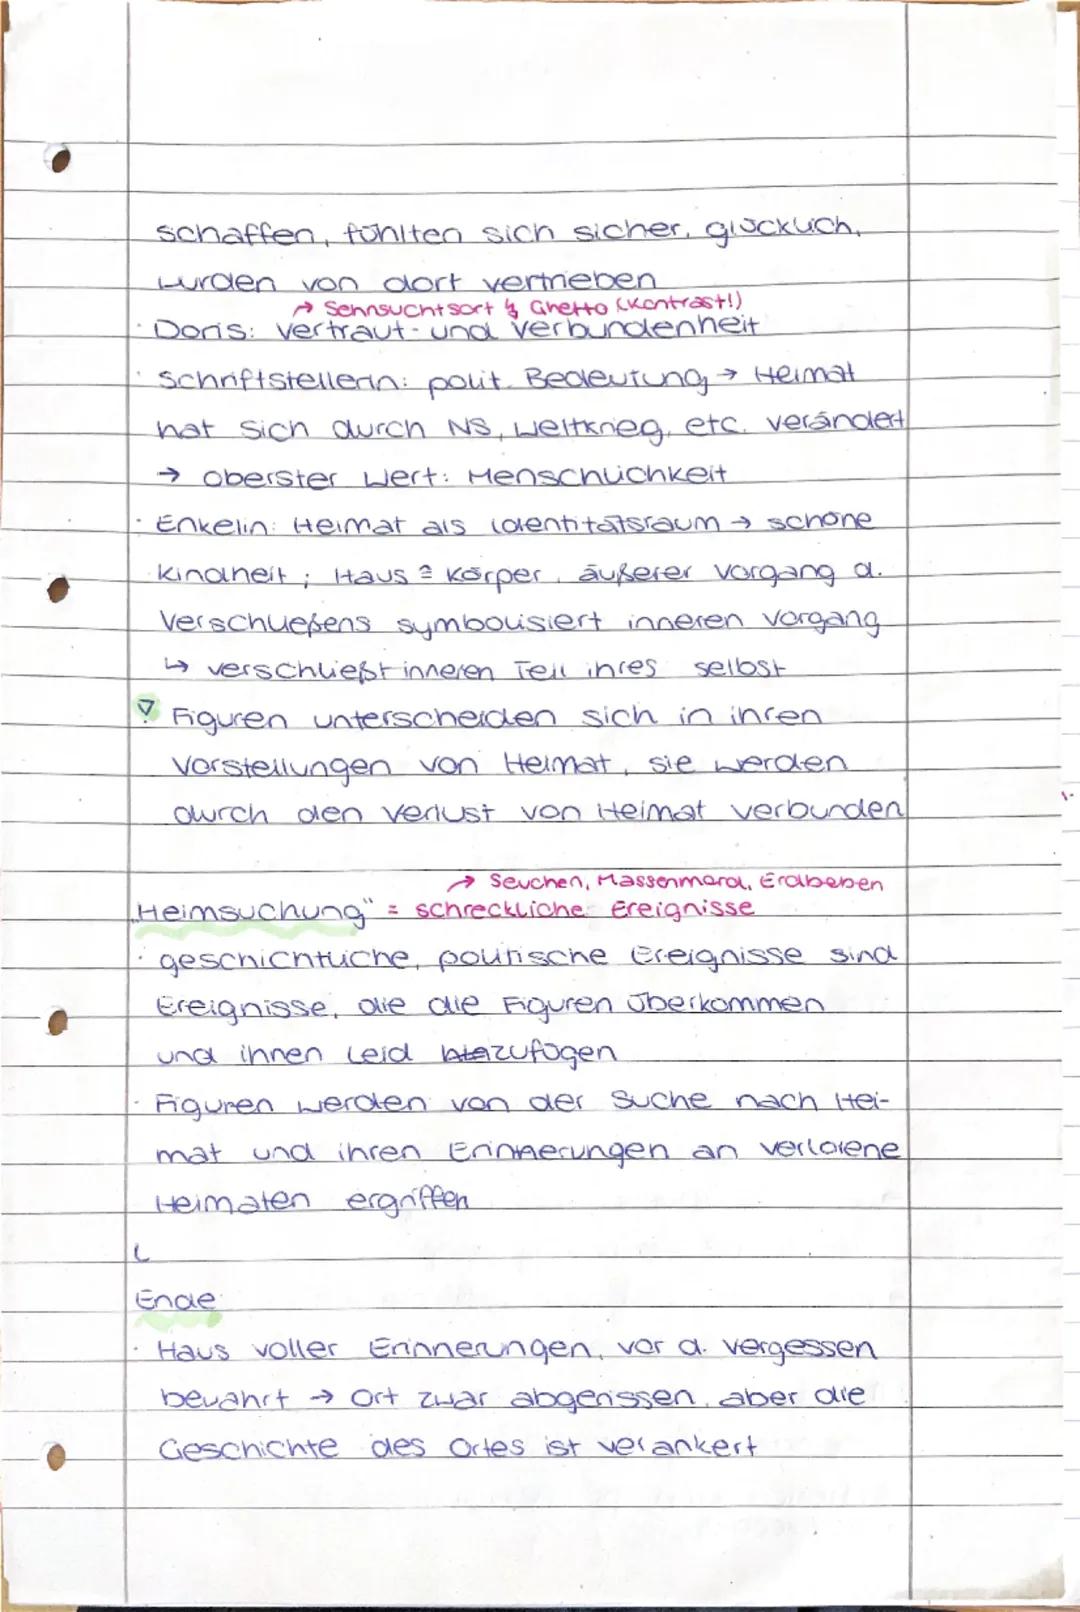 schaffen, fühlten sich sicher, glücklich,
wurden von dort vertrieben
→ Sehnsuchtsort ↯ Ghetto (Kontrast!)
· Doris: Vertraut- und Verbundenheit
· Schriftstellerin: polit. Bedeutung → Heimat
hat sich durch NS, Weltkrieg, etc. verändert
→ oberster Wert: Menschlichkeit
· Enkelin: Heimat als Identitätsraum → schöne
Kindheit ; Haus ≙ Körper, äußerer Vorgang d.
Verschließens symbolisiert inneren Vorgang
↳ verschließt inneren Teil ihres selbst
▽ Figuren unterscheiden sich in ihren
Vorstellungen von Heimat, sie werden
durch den Verlust von Heimat verbunden
→ Seuchen, Massenmord, Erdbeben
„Heimsuchung" = schreckliche Ereignisse
· geschichtliche, politische Ereignisse sind
Ereignisse, die die Figuren überkommen
und ihnen Leid zufügen
· Figuren werden von der Suche nach Hei-
mat und ihren Erinnerungen an verlorene
Heimaten ergriffen
Ende
· Haus voller Erinnerungen, vor d. vergessen
bewahrt → Ort zwar abgerissen, aber die
Geschichte des Ortes ist verankert